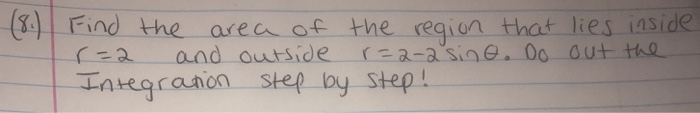 (8.) Find the area of the region that lies inside
r=2 and outside r=2-2sinθ. Do out the
Integration step by step!